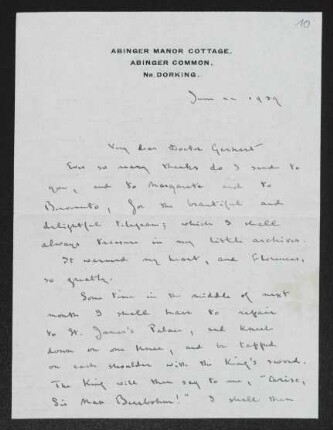 10
ABINGER MANOR COTTAGE,
ABINGER COMMON,
NR. DORKING.
June 1939
Very dear Doctor
Ever so many thanks do I send to
you, and to Margarete and to
Benvenuto, for the beautiful and
delightful telegram; which I shall
always treasure in my little archives.
It warmed my heart, and Florence's,
so greatly.
Some time in the middle of next
month I shall have to repair
to St. James's Palace, and kneel
down on one knee, and be tapped
on each shoulder with the King's sword.
The King will then say to me, "Arise,
Sir Max Beerbohm!" I shall then